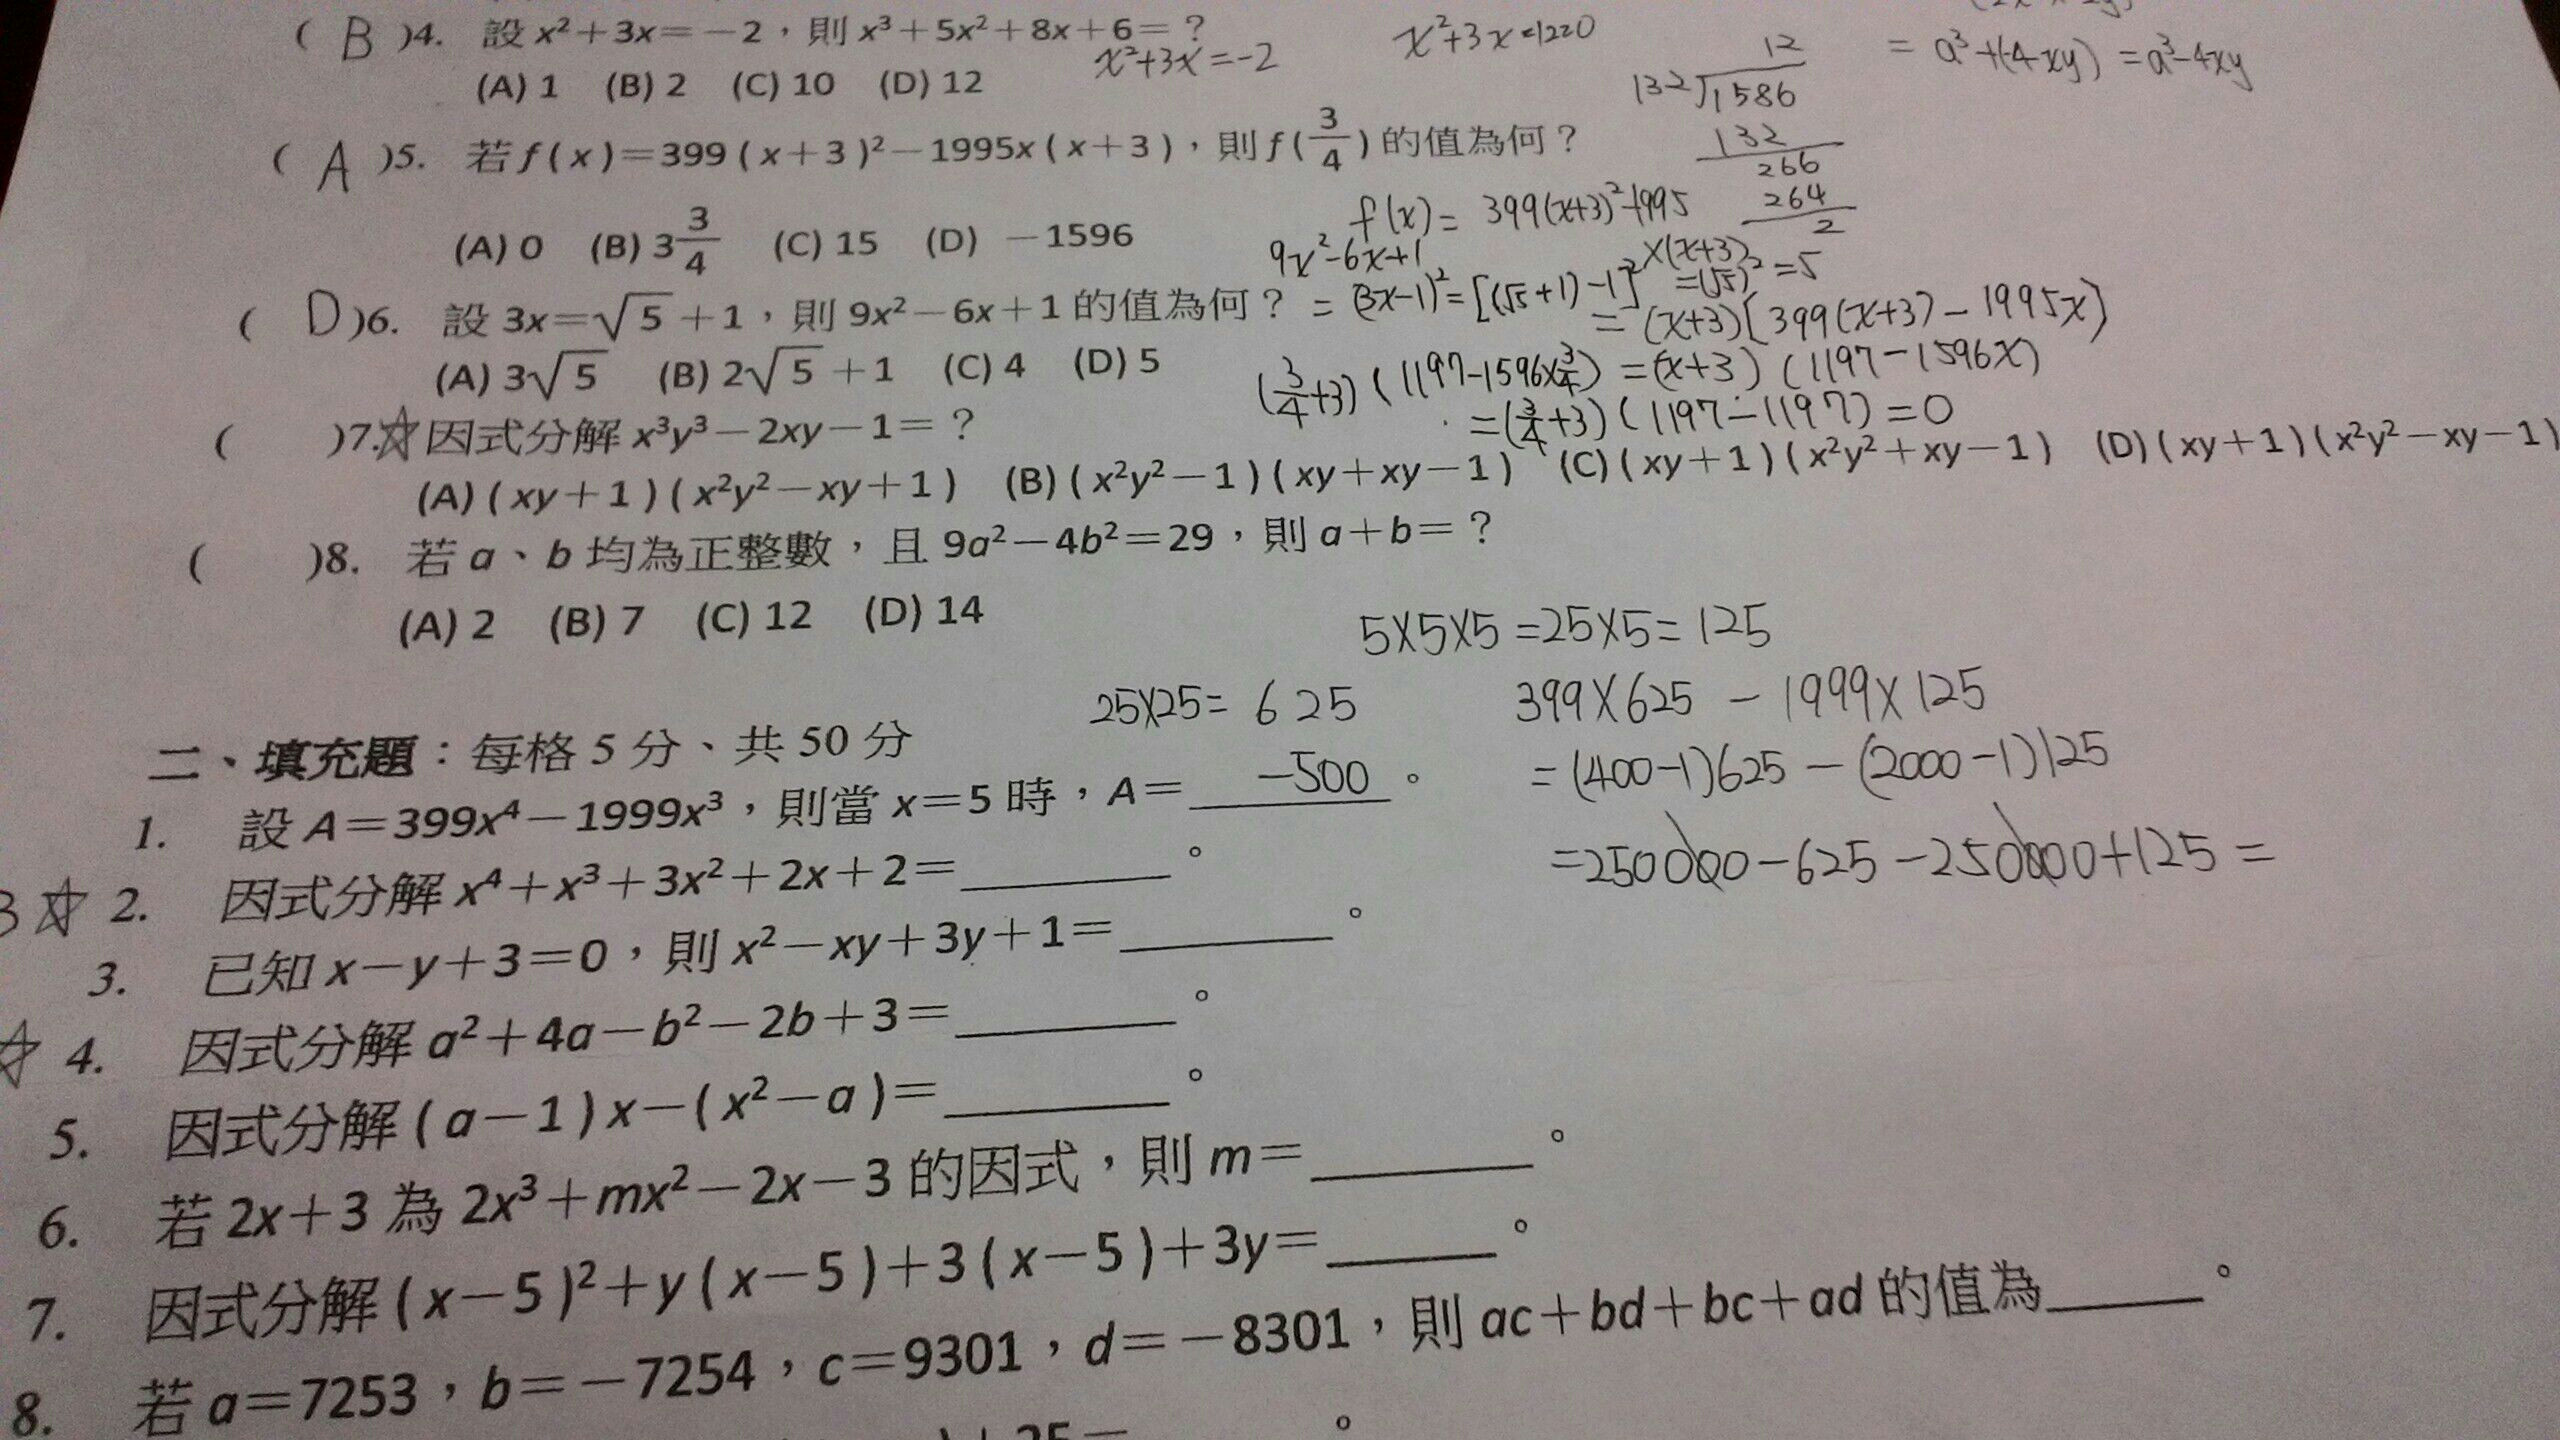 ( B )4. 設 x²+3x=-2，則 x³+5x²+8x+6=？
x²+3x=-2
(A) 1 (B) 2 (C) 10 (D) 12
= a³+(-4xy) = a³-4xy
12
132√1586
132
266
264
2
( A )5. 若 f(x)=399(x+3)²-1995x(x+3)，則 f(3/4) 的值為何？
(A) 0 (B) 3 3/4 (C) 15 (D) -1596
f(x)= 399(x+3)²-1995
x(x+3)
= (x+3)[399(x+3)-1995x]
= (x+3)(1197-1596x)
(3/4+3)(1197-1596×3/4)
= (3/4+3)(1197-1197)=0
( D )6. 設 3x=√5+1，則 9x²-6x+1 的值為何？
9x²-6x+1
= (3x-1)²=[(√5+1)-1]²=(√5)²=5
(A) 3√5 (B) 2√5+1 (C) 4 (D) 5
( )7.☆因式分解 x³y³-2xy-1=？
(A) (xy+1)(x²y²-xy+1) (B) (x²y²-1)(xy+xy-1) (C) (xy+1)(x²y²+xy-1) (D) (xy+1)(x²y²-xy-1)
( )8. 若 a、b 均為正整數，且 9a²-4b²=29，則 a+b=？
(A) 2 (B) 7 (C) 12 (D) 14
5×5×5=25×5=125
25×25= 625
399×625 - 1999×125
= (400-1)625 - (2000-1)125
=250000-625-250000+125=
二、填充題：每格 5 分、共 50 分
1. 設 A=399x⁴-1999x³，則當 x=5 時，A= -500 。
3 ☆ 2. 因式分解 x⁴+x³+3x²+2x+2=______。
3. 已知 x-y+3=0，則 x²-xy+3y+1=______。
☆ 4. 因式分解 a²+4a-b²-2b+3=______。
5. 因式分解 (a-1)x-(x²-a)=______。
6. 若 2x+3 為 2x³+mx²-2x-3 的因式，則 m=______。
7. 因式分解 (x-5)²+y(x-5)+3(x-5)+3y=______。
8. 若 a=7253，b=-7254，c=9301，d=-8301，則 ac+bd+bc+ad 的值為______。
)+25=